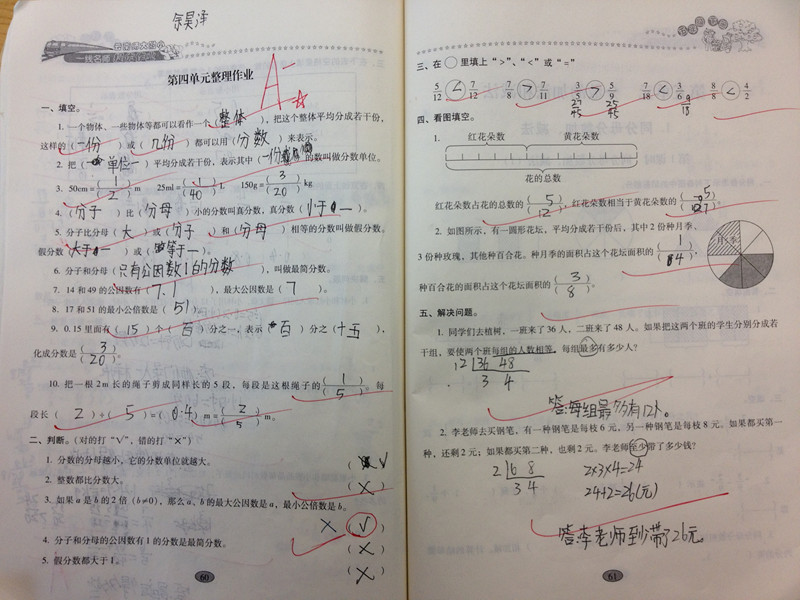 余昊泽
云南师大附小
一线名师
第四单元整理作业
A-
一、填空。
1. 一个物体、一些物体等都可以看作一个(整体),把这个整体平均分成若干份,
这样的(一份)或(几份)都可以用(分数)来表示。
2. 把(单位一)平均分成若干份,表示其中(一份)的数叫做分数单位。
3. 50cm=(1/2)m 25ml=(1/40)L 150g=(3/20)kg
4. (分子)比(分母)小的分数叫真分数,真分数(小于一)。
5. 分子比分母(大)或(分子)和(分母)相等的分数叫做假分数。
假分数(大于一)或(等于一)。
6. 分子和分母(只有公因数1的分数),叫做最简分数。
7. 14和49的公因数有(7.1),最大公因数是(7)。
8. 17和51的最小公倍数是(51)。
9. 0.15里面有(15)个(百)分之一,表示(百)分之(十五),
化成分数是(3/20)。
10. 把一根2m长的绳子剪成同样长的5段,每段是这根绳子的(1/5)。每
段长(2)÷(5)=(0.4)m=(2/5)m。
二、判断。(对的打“√”,错的打“×”)
1. 分数的分母越小,它的分数单位就越大。 (√)
2. 整数都比分数大。 (×)
3. 如果a是b的2倍(b≠0),那么a、b的最大公因数是a,最小公倍数是b。
× (√)
4. 分子和分母的公因数有1的分数是最简分数。 (×)
5. 假分数都大于1。 (×)
60
三、在○里填上“>”、“<”或“=”
5/12 < 7/12 7/8 > 7/11 3/5 > 5/9 7/18 < 3/6 8/8 < 4/2
27/45 25/45 9/18
四、看图填空。
1. 红花朵数 黄花朵数
花的总朵数
红花朵数占花的总朵数的(5/12),红花朵数相当于黄花朵数的(5/7)。
2. 如图所示,有一圆形花坛,平均分成若干份后,其中2份种月季,
3份种玫瑰,其他种百合花。种月季的面积占这个花坛面积的(1/4),
种百合花的面积占这个花坛面积的(3/8)。
月季
五、解决问题。
1. 同学们去植树,一班来了36人,二班来了48人。如果把这两个班的学生分别分成若
干组,要使两个班每组的人数相等,每组最多有多少人?
12 36 48
3 4
答:每组最多有12人。
2. 李老师去买钢笔,有一种钢笔是每枝6元,另一种钢笔是每枝8元。如果都买第一
种,还剩2元;如果都买第二种,也剩2元。李老师至少带了多少钱?
2 6 8
3 4
2×3×4=24
24+2=26(元)
答:李老师至少带了26元。
61